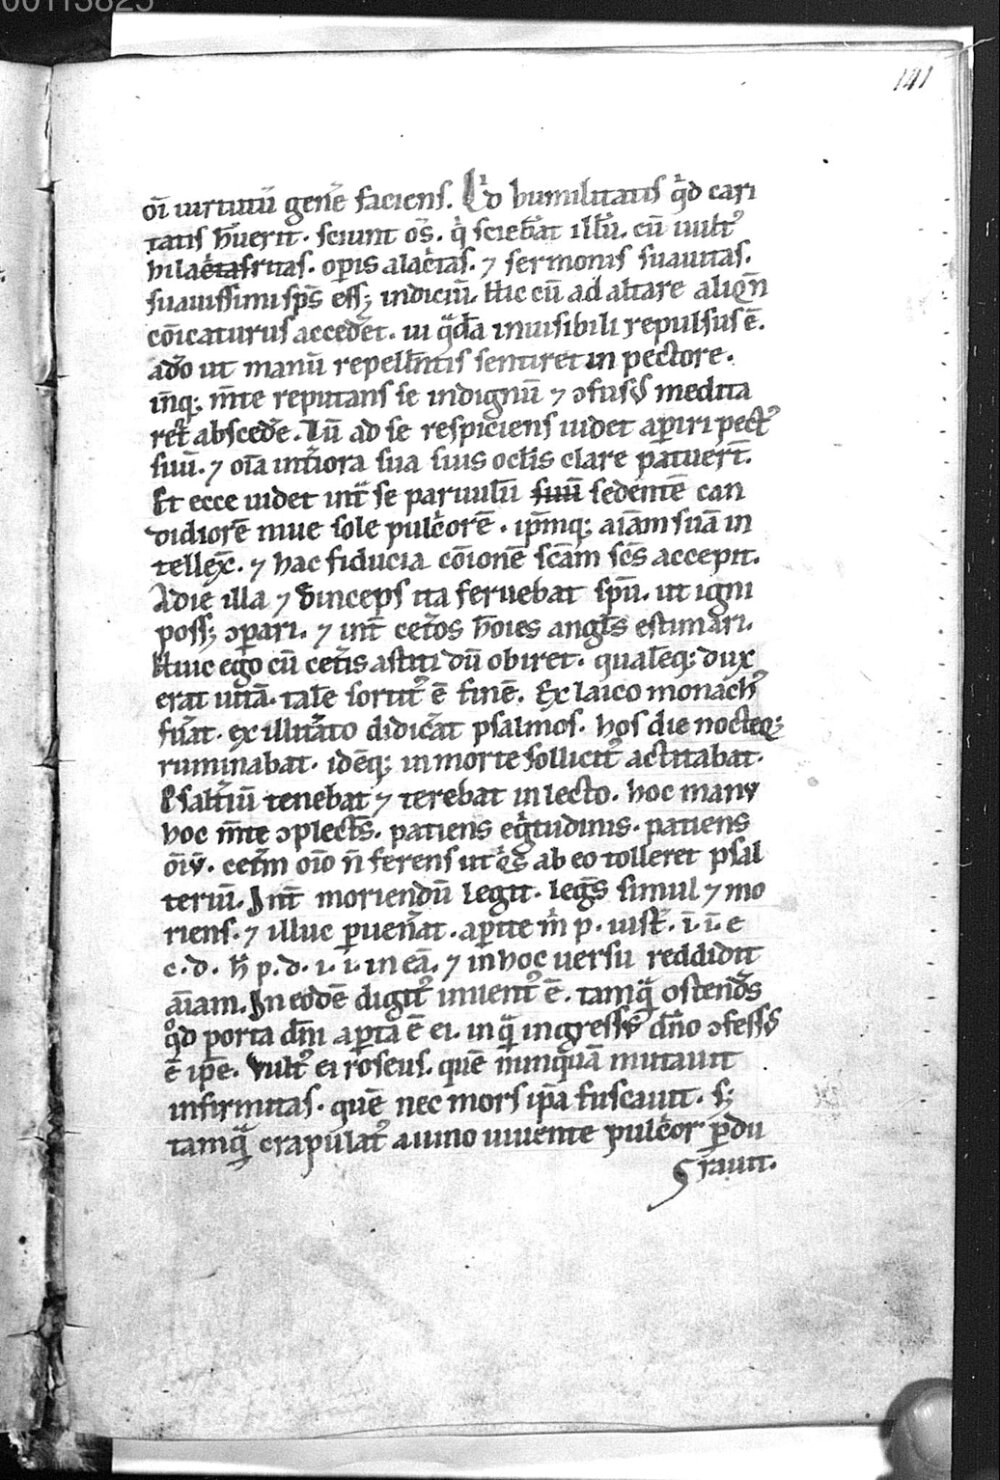 00113825
141
oī uirtutū gen̄e faciens. Qͥd humilitatis qͥd cari
tatis h̄uerit. sciunt om̄s. qͥ sciebāt illū. cū uultꝰ
hilaritas. opis alac̄tas. ⁊ sermonis suauitas.
suauissimi sp̄s eēt indiciū. Hic cū ad altare aliqn̄
cōicaturus accederet. ui q̄dā inuisibili repulsus ē.
ado ut manū repellētis sentiret in pectore.
inq; m̄te reputans se indignū ⁊ ɔfusꝰ medita
ret̄ abscede. Tū ad se respiciens uidet apiri pectꝰ
suū. ⁊ oīa int̄iora sua suis oclīs clare patuer̄t.
Et ecce uidet int̄ se paruulū suū sedentē can
didiorē niue sole pulc̄orē. ip̄mq; aīam suā in
tellex̄. ⁊ hac fiducia cōionē sc̄am sc̄s accepit.
A die illa ⁊ deinceps ita feruebat sp̄u. ut igni
poss; ɔpari. ⁊ int̄ cet̄os hoīes angls̄ estimari.
Huic ego cū cet̄is astiti dū obiret. qualēq; dux
erat uitā. talē sortitꝰ ē finē. Ex laico monachꝰ
fūat. ex illit̄ato didic̄at psalmos. hos die nocteq;
ruminabat. idēq; in morte sollicitꝰ actitabat.
Psalt̄iū tenebat ⁊ terebat in lecto. hoc manu
hoc m̄te ɔplectēs. patiens eḡtudinis. patiens
oīū. cet̄m oīo n̄ ferens ut qͥs ab eo tolleret psal
teriū. Int̄ moriendū legit. legēs simul ⁊ mo
riens. ⁊ illuc puen̄at. apite m̄ p. iust̄. i. i. e
c. d. h̄ p. d. i. i. in eā. ⁊ in hoc uersu reddidit
aīam. In eodē digitꝰ inuentꝰ ē. tamq̄ ostendēs
qͦd porta dn̄i apta ē ei. in q̄ ingressꝰ dn̄o ɔfessꝰ
ē ipe. Vultꝰ ei roseus. quē nunquā mutauit
infirmitas. quē nec mors ip̄a fuscauit. s;
tamq̄ crapulatꝰ a uino uiuente pulc̄or pdu
rauit.